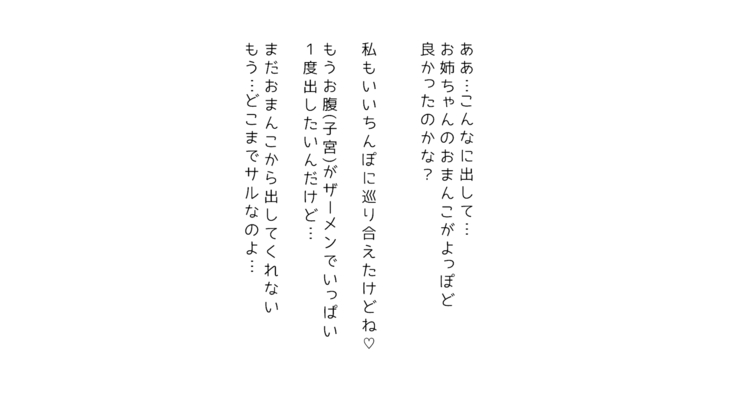 ああ…こんなに出して…
お姉ちゃんのおまんこがよっぽど
良かったのかな？
私もいいちんぽに巡り合えたけどね♡
もうお腹(子宮)がザーメンでいっぱい
１度出したいんだけど…
まだおまんこから出してくれない
もう…どこまでサルなのよ…